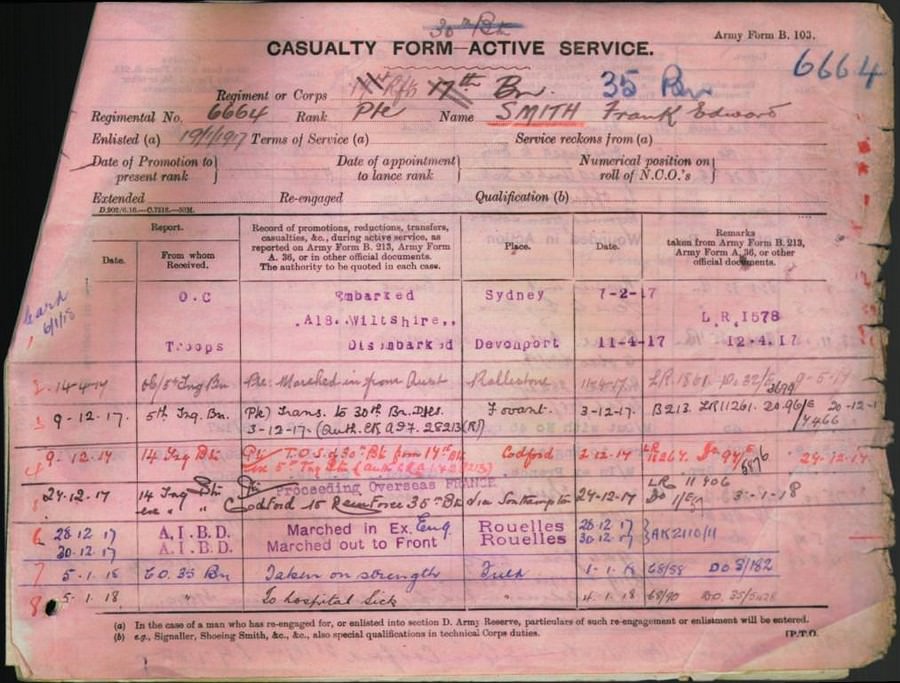 30th Bn
Army Form B. 103.
CASUALTY FORM—ACTIVE SERVICE.
6664
Regiment or Corps 17th Bn. 35 Bn
Regimental No. 6664 Rank Pte Name SMITH Frank Edward
Enlisted (a) 19/1/1917 Terms of Service (a) Service reckons from (a)
Date of Promotion to present rank } Date of appointment to lance rank } Numerical position on roll of N.C.O.'s }
Extended Re-engaged Qualification (b)
Report. Record of promotions, reductions, transfers, casualties, &c., during active service, as reported on Army Form B. 213, Army Form A. 36, or in other official documents. The authority to be quoted in each case. Place. Date. Remarks taken from Army Form B. 213, Army Form A. 36, or other official documents.
Date. From whom Received.
O.C Embarked Sydney 7-2-17
A18. Wiltshire,, L.R.1578
6/1/18
Troops Disembarked Devonport 11-4-17 12.4.17
2 14-4-17 Pte. Marched in from Aust Rollestone 11-4-17.
3 9-12-17. 5th Trg. Bn. Pte) Trans. to 30th Bn. Dfts. Fovant. 3-12-17. B213. LR11261. 20-12-1
3-12-17. (Auth. 28213 7466
4 9.12.17 14 Trg Btn Pte T.O.S. of 30th Bt from 14th Codford 2.12.17 24-12-17
5 24.12.17 14 Trg Btn Pte Proceeding Overseas FRANCE LR 11406
Codford to Reinforce 35th Bt via Southampton 24-12-17 3-1-18
6 28.12 17 A.I.B.D. Marched in Ex. Eng Rouelles 28.12 17 } AK2110/11
30.12.17 A.I.B.D. Marched out to Front Rouelles 30.12.17
7 5.1.18 C.O. 35 Bn Taken on strength Field 1.1.18 68/58 DO 3/182
8 5.1.18 " To hospital Sick " 4.1.18 68/90
(a) In the case of a man who has re-engaged for, or enlisted into section D. Army Reserve, particulars of such re-engagement or enlistment will be entered.
(b) e.g., Signaller, Shoeing Smith, &c., &c., also special qualifications in technical Corps duties. [P.T.O.